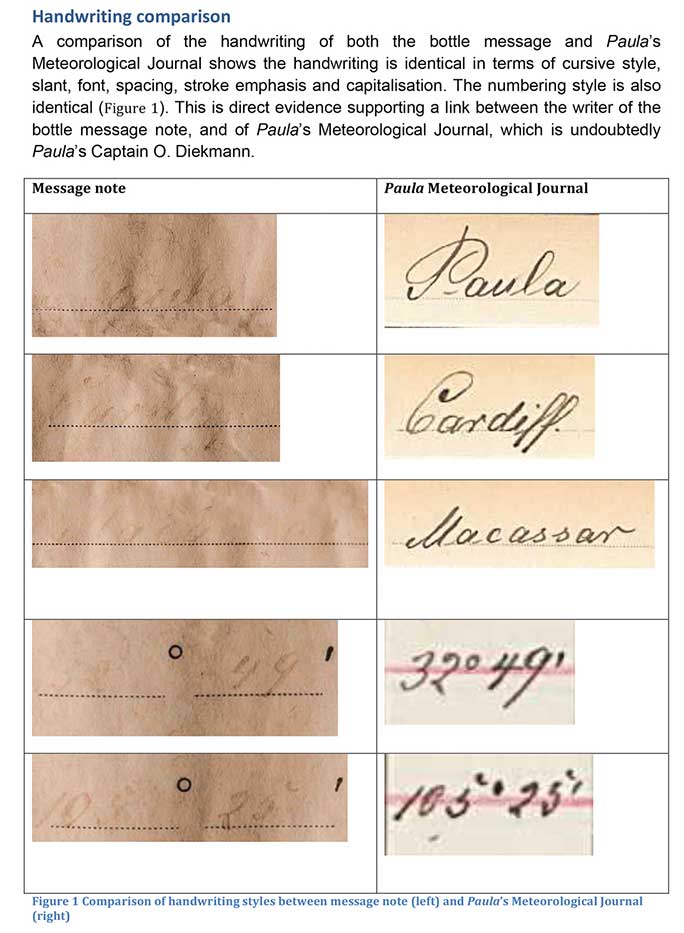 Handwriting comparison
A comparison of the handwriting of both the bottle message and Paula's
Meteorological Journal shows the handwriting is identical in terms of cursive style,
slant, font, spacing, stroke emphasis and capitalisation. The numbering style is also
identical (Figure 1). This is direct evidence supporting a link between the writer of the
bottle message note, and of Paula's Meteorological Journal, which is undoubtedly
Paula's Captain O. Diekmann.
Message note Paula Meteorological Journal
Paula
Cardiff.
Macassar
° 49 ' 32° 49'
° ' 105° 25'
Figure 1 Comparison of handwriting styles between message note (left) and Paula's Meteorological Journal
(right)